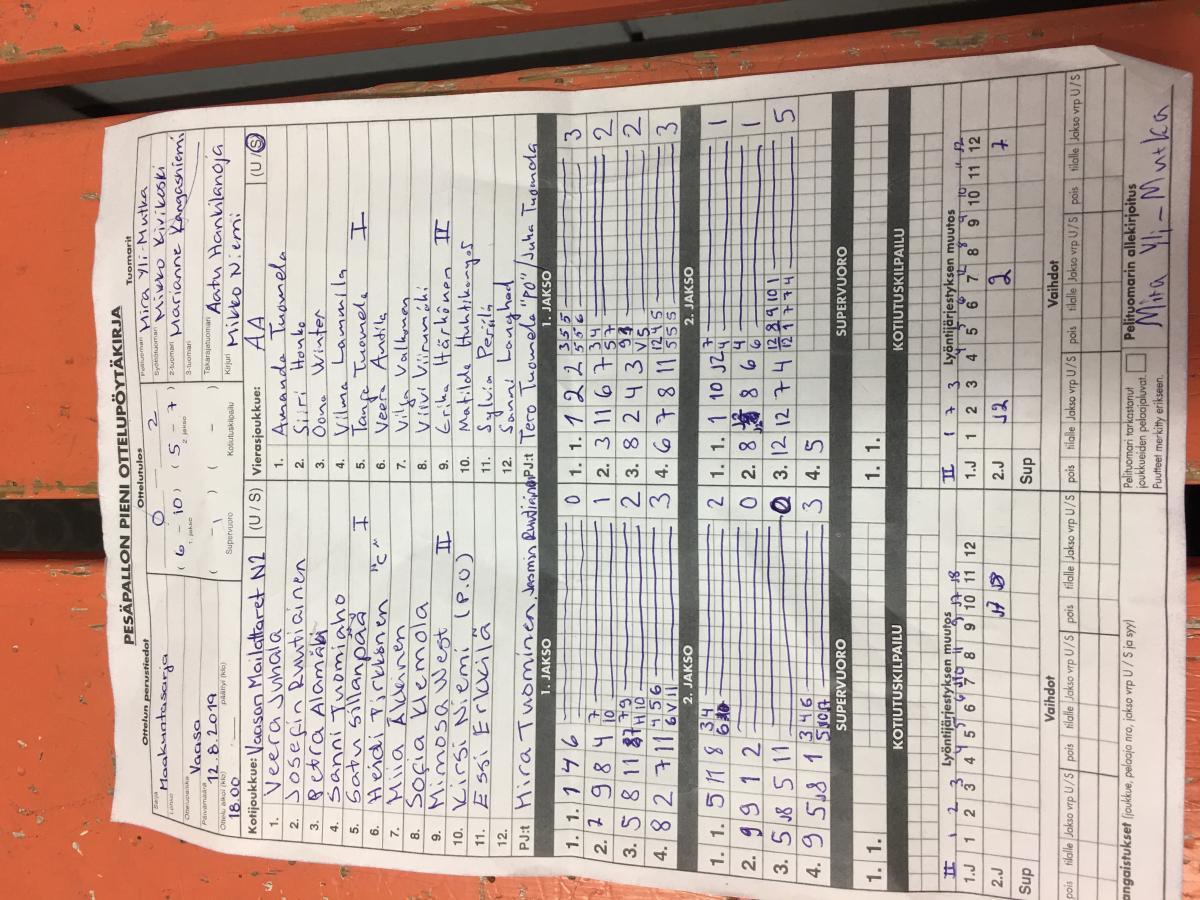 PESÄPALLON PIENI OTTELUPÖYTÄKIRJA
Ottelun perustiedot
Ottelutulos
Tuomarit
Sarja
Maakuntasarja
Lohko
Ottelupaikka
Vaasa
Päivämäärä
12.8.2019
Ottelu alkoi (klo)
päättyi (klo)
18.00
0 - 2
( 6 - 10 ) ( 5 - 7 )
1. jakso
2. jakso
( - ) ( - )
Supervuoro
Kotiutuskilpailu
Pelituomari
Mira Yli-Mutka
Syöttötuomari
Mikko Kivikoski
2-tuomari
Marianne Kangasniemi
3-tuomari
Takarajatuomari
Aatu Hankilanoja
Kirjuri
Mikko Niemi
Kotijoukkue: Vaasan Mailattaret N2 (U / S)
1. Veera Juhala
2. Josefin Ruutiainen
3. Petra Alamäki
4. Sanni Tuomiaho
5. Satu Sillanpää I
6. Heidi Pirkkonen "C"
7. Miia Äkkinen
8. Sofia Klemola
9. Mimosa West II
10. Kirsi Niemi (P.U)
11. Essi Erkkilä
12.
PJ:t Mira Tuominen, Jasmin Ruutiainen
Vierasjoukkue: AA (U / S)
1. Amanda Tuomela
2. Siiri Honko
3. Oona Winter
4. Vilma Lammila
5. Tanja Tuomela I
6. Veera Anttila
7. Vilja Valkonen
8. Viivi Viirumäki
9. Erika Härkönen II
10. Matilda Huhtikangas
11. Sylvia Perälä
12. Sanni Langhed
PJ:t Tero Tuomela "PO" / Juha Tuomela
1. JAKSO
1. JAKSO
1. 1. 1 4 6 0
2. 7 9 8 4 7 10 1
3. 5 8 11 2
4. 8 2 7 11 4 5 6 6 V 11 3
1. 1. 1 2 2 3 5 5 5 5 6 3
2. 3 11 6 7 3 4 5 7 2
3. 8 2 4 3 V 5 2
4. 6 7 8 11 12 4 5 5 5 5 3
2. JAKSO
2. JAKSO
1. 1. 5 11 8 3 4 2
2. 9 9 1 2 0
3. 5 5 11 0
4. 9 5 1 3 4 6 3
1. 1. 1 10 12 7 4 1
2. 8 8 6 4 6 1
3. 12 12 7 4 12 8 9 10 1 12 1 7 7 4 5
4. 5
SUPERVUORO
SUPERVUORO
1. 1.
1. 1.
KOTIUTUSKILPAILU
KOTIUTUSKILPAILU
II Lyöntijärjestyksen muutos
1.J 1 2 3 4 5 6 7 8 9 10 11 12
2.J
Sup
II Lyöntijärjestyksen muutos
1.J 1 2 3 4 5 6 7 8 9 10 11 12
2.J 12 2 7
Sup
Vaihdot
Vaihdot
pois tilalle Jakso vrp U / S pois tilalle Jakso vrp U / S pois tilalle Jakso vrp U / S
pois tilalle Jakso vrp U / S pois tilalle Jakso vrp U / S pois tilalle Jakso vrp U / S
angaistukset (joukkue, pelaaja nro, jakso vrp U / S ja syy)
Pelituomari tarkastanut
joukkueiden pelaajaluvat.
Puutteet merkitty erikseen.
Pelituomarin allekirjoitus
Mira Yli-Mutka